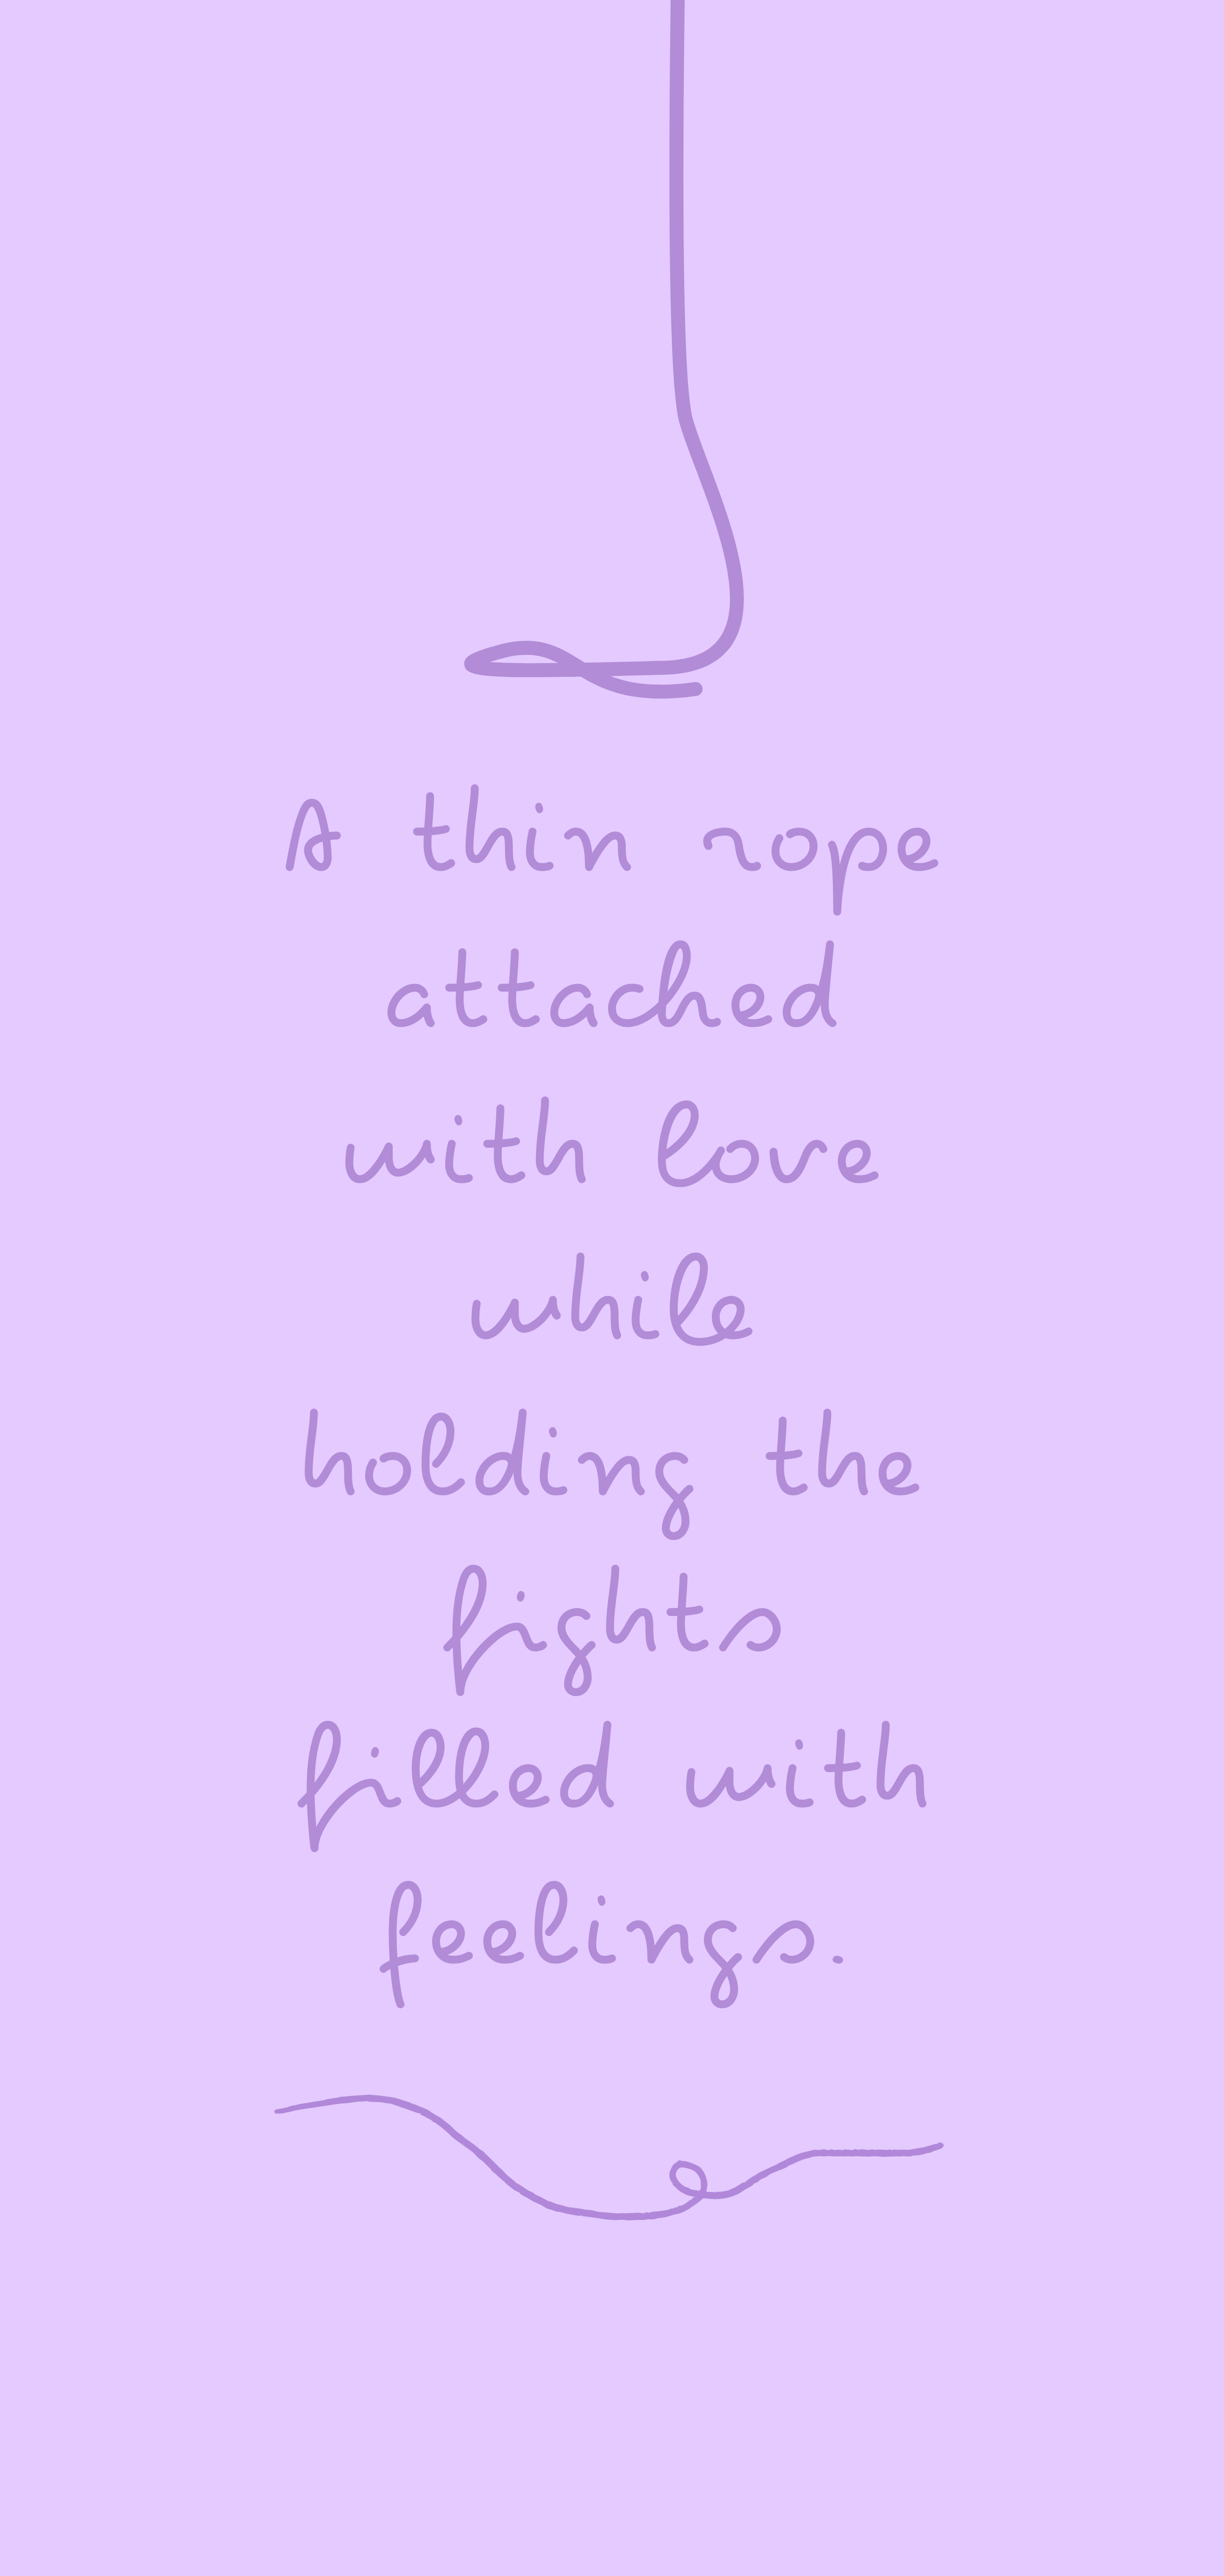 A thin rope
attached
with love
while
holding the
fights
filled with
feelings.